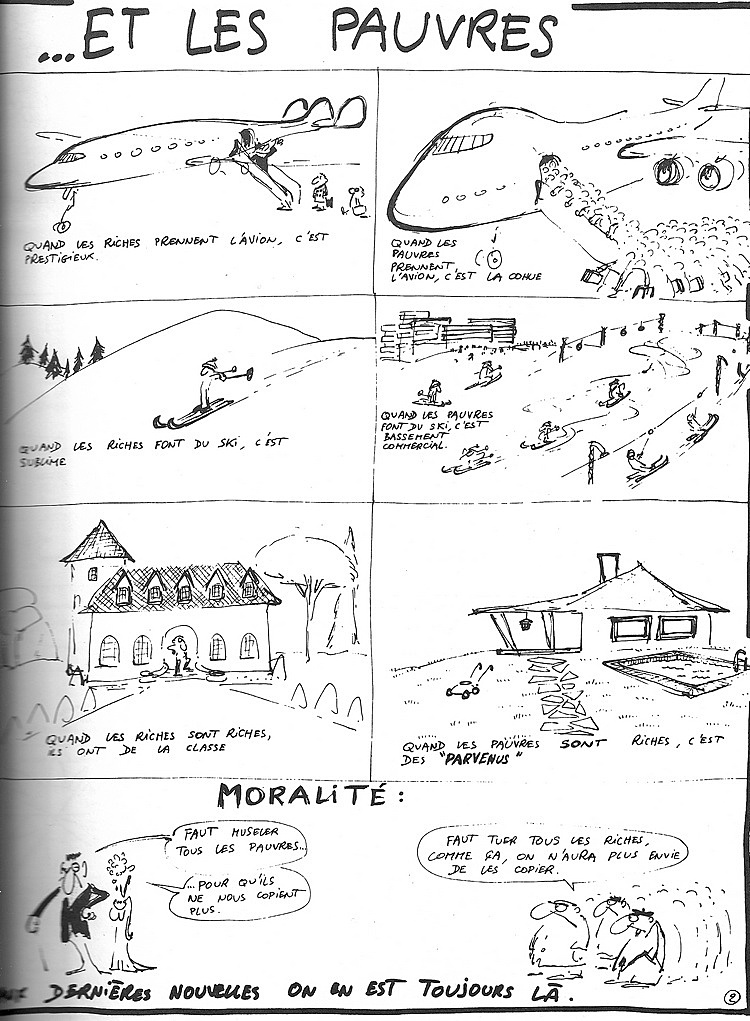 ...ET LES PAUVRES
QUAND LES RICHES PRENNENT L'AVION, C'EST
PRESTIGIEUX.
QUAND LES
PAUVRES
PRENNENT
L'AVION, C'EST LA COHUE
QUAND LES RICHES FONT DU SKI, C'EST
SUBLIME
QUAND LES PAUVRES
FONT DU SKI, C'EST
BASSEMENT
COMMERCIAL.
QUAND LES RICHES SONT RICHES,
ILS ONT DE LA CLASSE
QUAND LES PAUVRES SONT RICHES, C'EST
DES "PARVENUS"
MORALITÉ:
FAUT MUSELER
TOUS LES PAUVRES...
...POUR QU'ILS
NE NOUS COPIENT
PLUS.
FAUT TUER TOUS LES RICHES,
COMME ÇA, ON N'AURA PLUS ENVIE
DE LES COPIER.
DERNIÈRES NOUVELLES ON EN EST TOUJOURS LÀ.
2